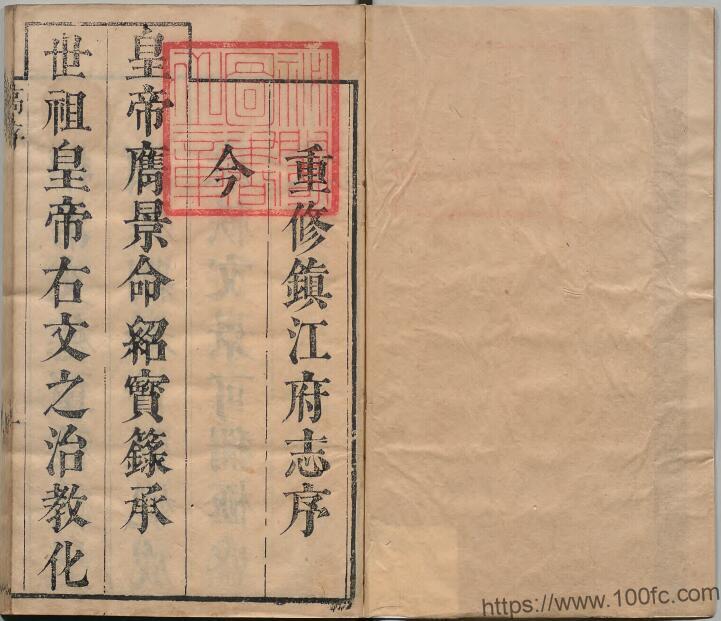 重修鎮江府志序
今
皇帝膺景命紹寳籙承
世祖皇帝右文之治教化
高序
https://www.100fc.com